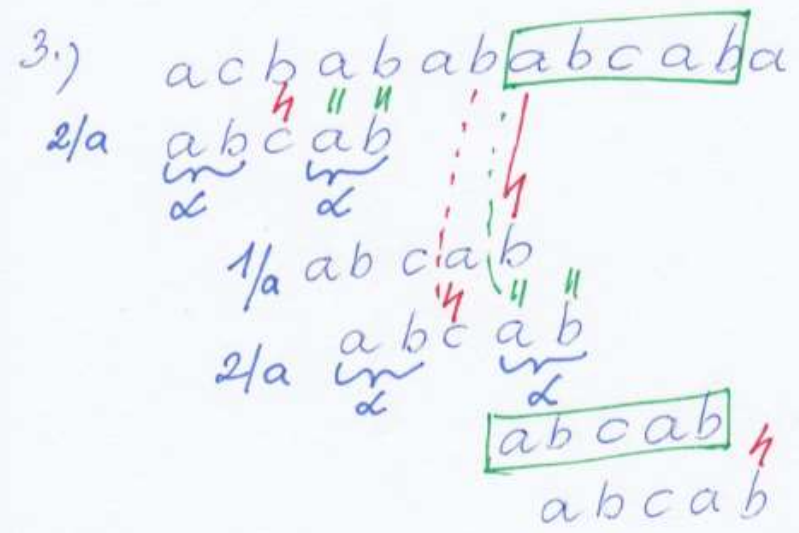 3.) a c b a b a b a b c a b a
2/a a b c a b
α α
1/a a b c a b
2/a a b c a b
α α
a b c a b
a b c a b